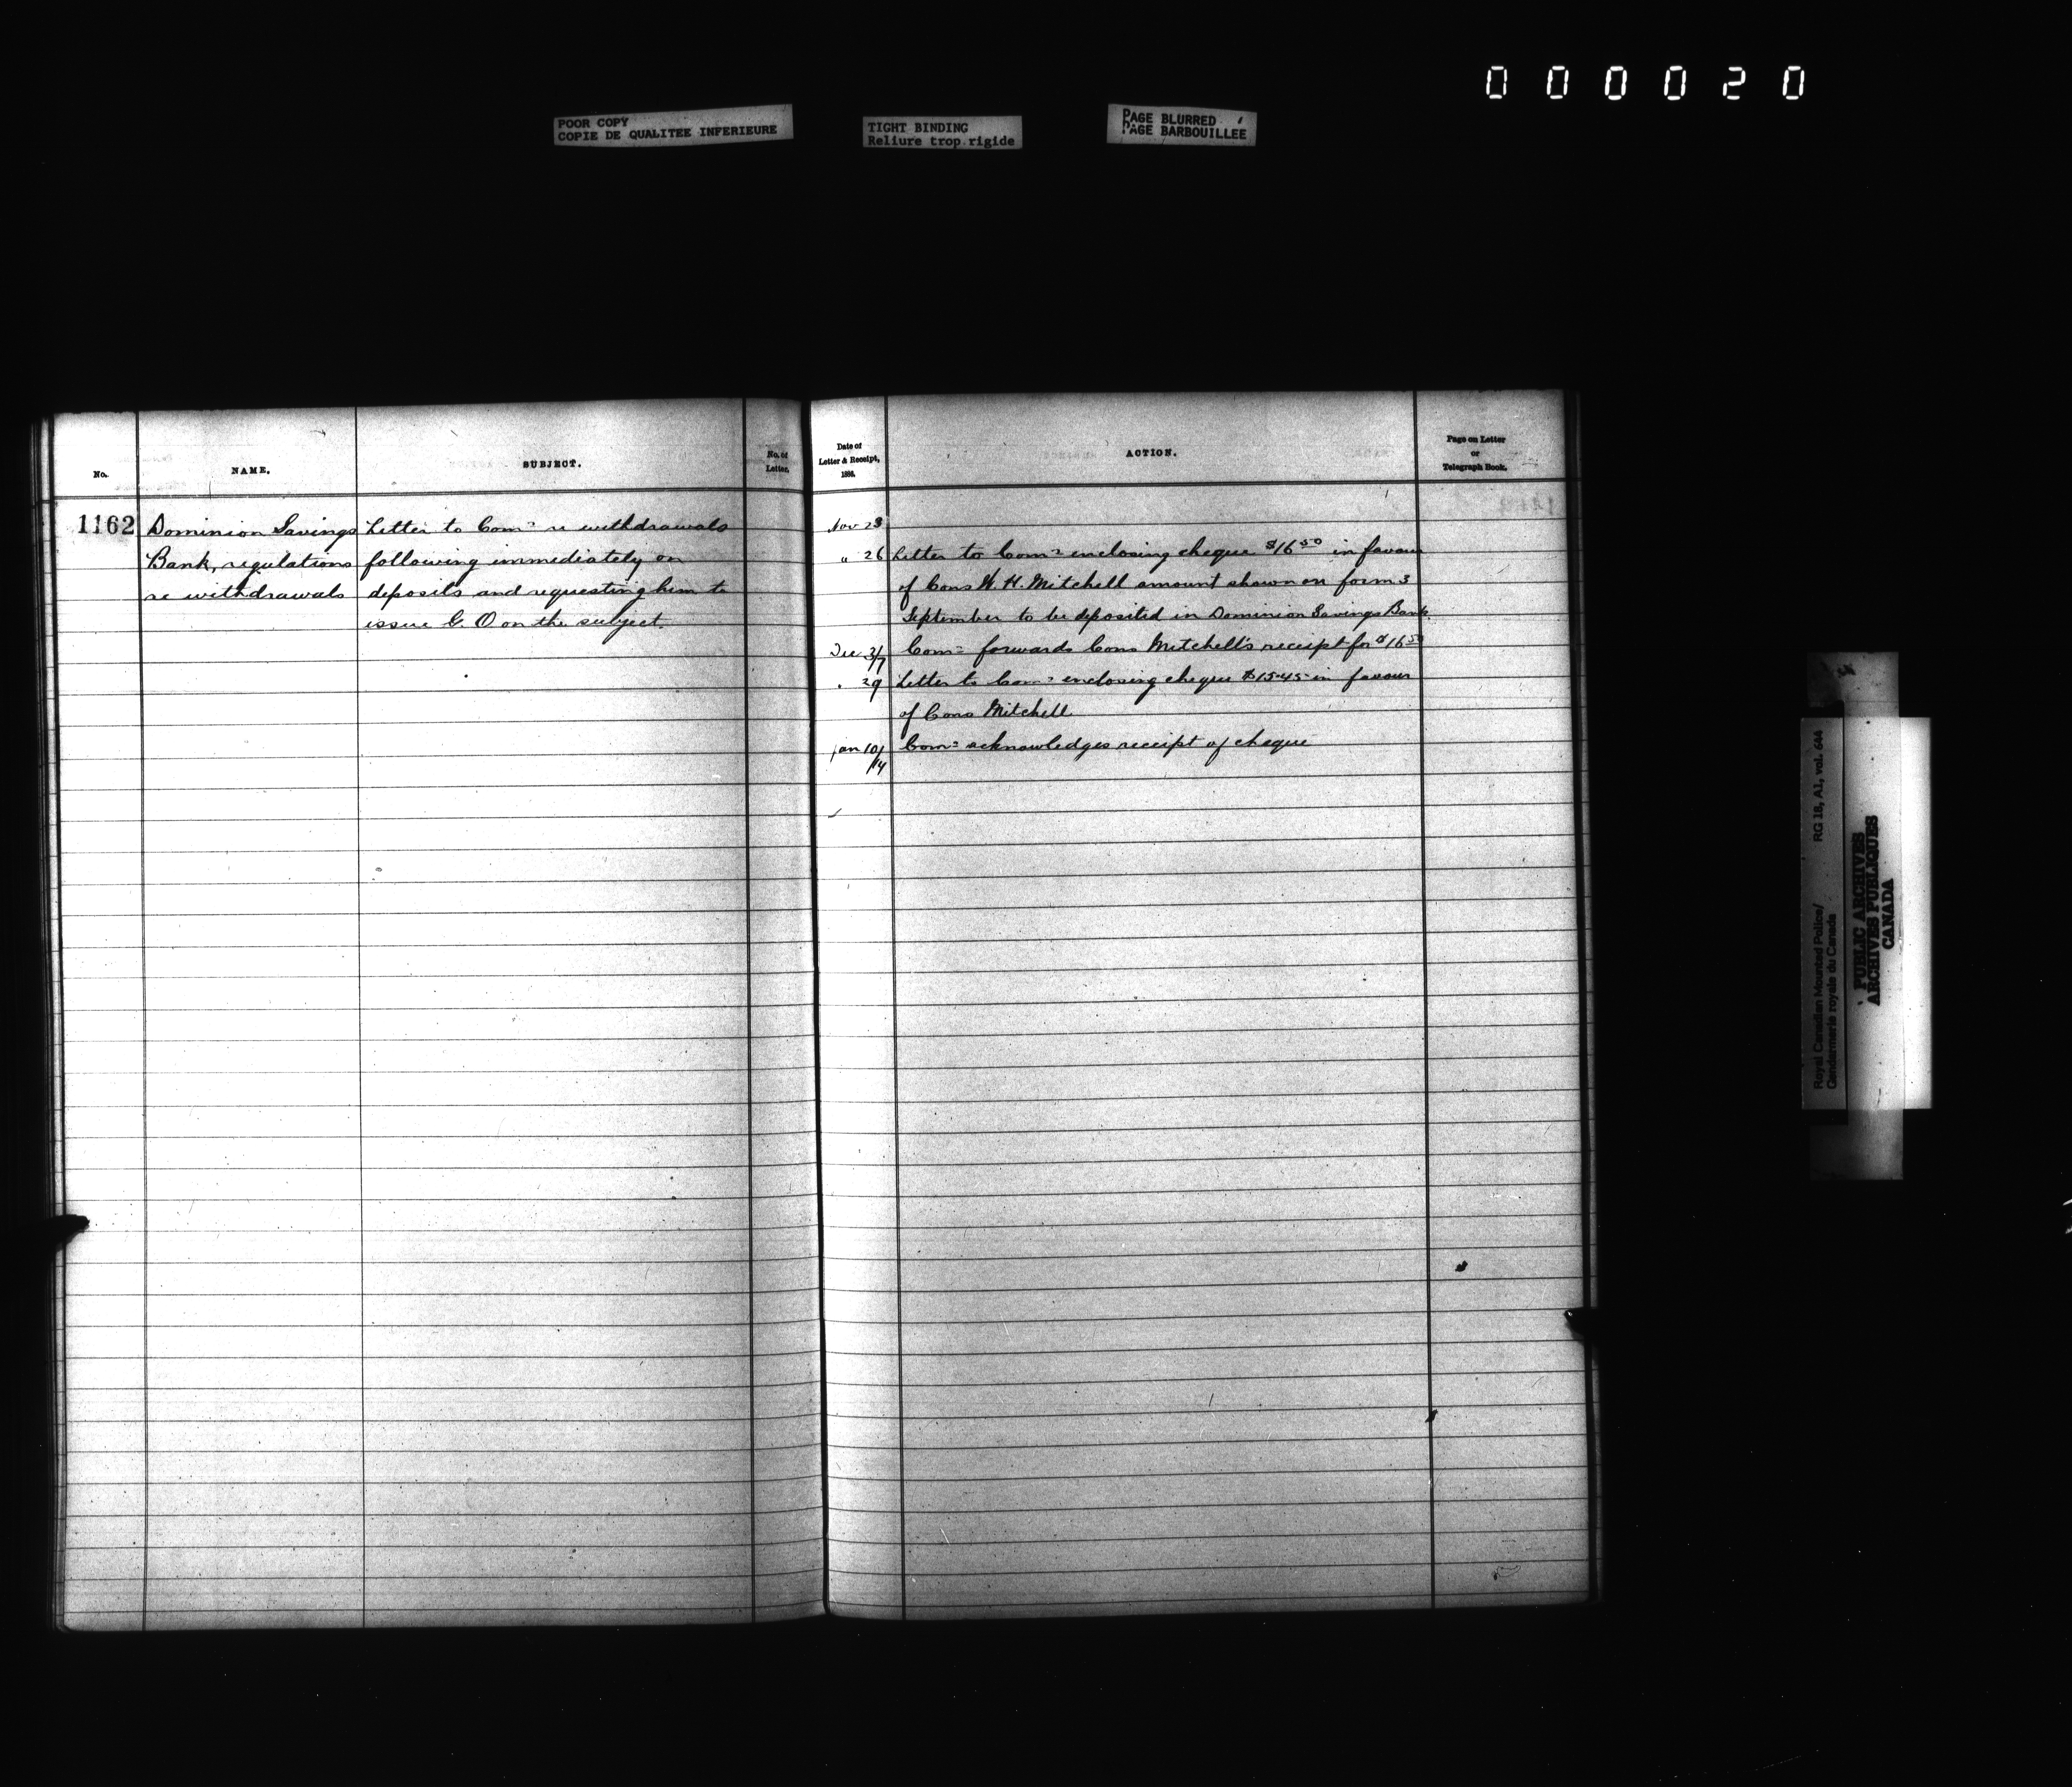 000020
POOR COPY
COPIE DE QUALITEE INFERIEURE
TIGHT BINDING
Reliure trop rigide
PAGE BLURRED
PAGE BARBOUILLEE
No.
NAME.
SUBJECT.
No. of
Letter.
Date of
Letter & Receipt,
1886.
ACTION.
Page on Letter
or
Telegraph Book.
1162
Dominion Savings
Bank, regulations
re withdrawals
Letter to Comr re withdrawals
following immediately on
deposits and requesting him to
issue G. O on the subject.
Nov 23
" 26 Letter to Comr enclosing cheque $16 50 in favour
of Cons W. H. Mitchell amount shown on form 3
September to be deposited in Dominion Savings Bank.
Dec 3/7 Comr forwards Cons Mitchell's receipt for $16 50
" 29 Letter to Comr enclosing cheque $15.45 in favour
of Cons Mitchell
Jan 10/14 Comr acknowledges receipt of cheque
Royal Canadian Mounted Police/
Gendarmerie royale du Canada
RG 18, A1, vol. 644
PUBLIC ARCHIVES
ARCHIVES PUBLIQUES
CANADA